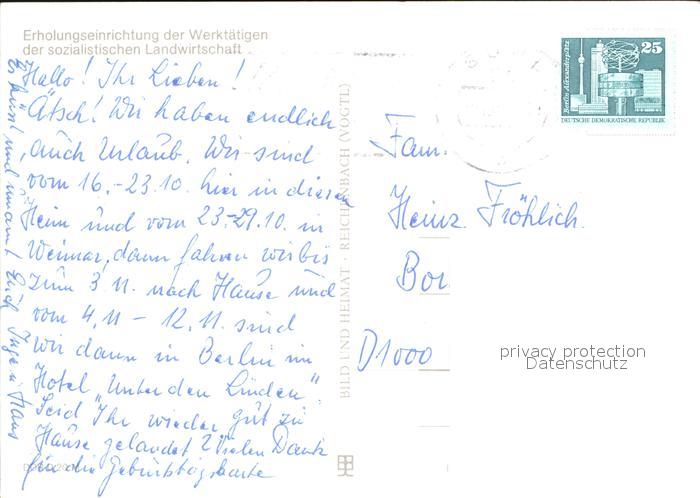 Erholungseinrichtung der Werktätigen
der sozialistischen Landwirtschaft
Hallo! Ihr Lieben!
Ätsch! Wir haben endlich
auch Urlaub. Wir sind
vom 16.-23.10. hier in diesem
Heim und vom 23.-29.10. in
Weimar, dann fahren wir bis
zum 3.11. nach Hause und
vom 4.11 - 12.11. sind
wir dann in Berlin im
Hotel "Unter den Linden".
Seid Ihr wieder gut zu
Hause gelandet? Vielen Dank
für die Geburtstagskarte
Es küsst und umarmt Euch Inge u. Hans
BILD UND HEIMAT · REICHENBACH (VOGTL)
Berlin, Alexanderplatz
25
DEUTSCHE DEMOKRATISCHE REPUBLIK
Fam.
Heinz Fröhlich
D1000
privacy protection
Datenschutz